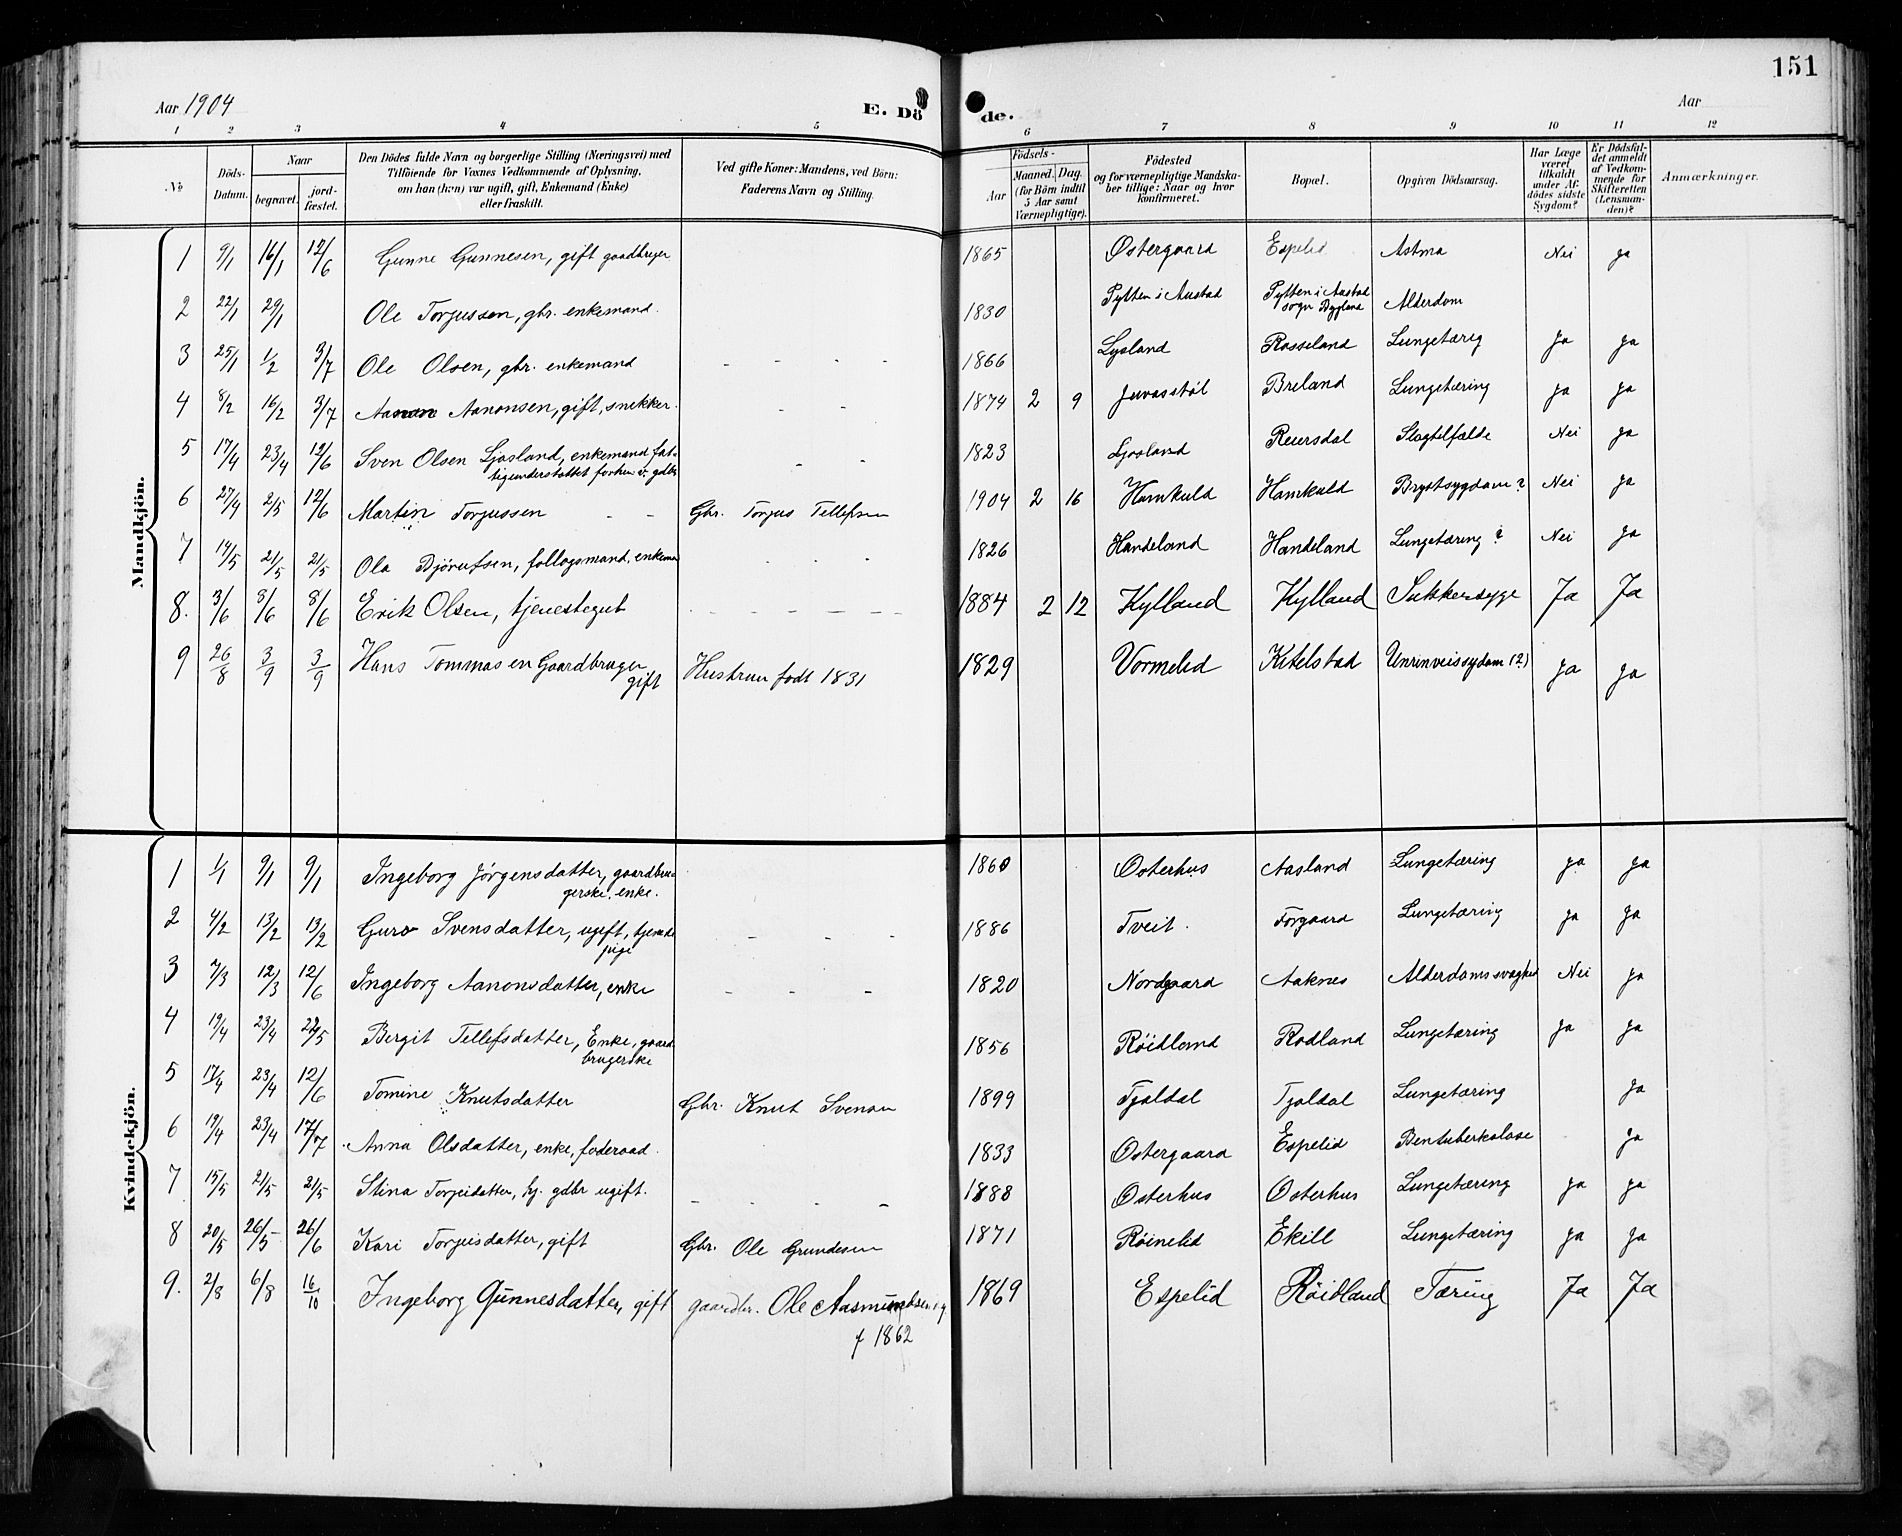 151
Aar 1904 E. Dö de. Aar
1 2 3 4 5 6 7 8 9 10 11 12
No
Döds-Datum.
Naar
begravet.
jord-fæstet.
Den Dödes fulde Navn og borgerlige Stilling (Næringsvei) med
Tilföiende for Voxnes Vedkommende af Oplysning,
om han (hun) var ugift, gift, Enkemand (Enke)
eller fraskilt.
Ved gifte Koner: Mandens, ved Börn:
Faderens Navn og Stilling.
Födsels-
Aar
Maaned. Dag.
(for Börn indtil
5 Aar samt
Værnepligtige).
Födested
og for værnepligtige Mandska-
ber tillige: Naar og hvor
konfirmeret.
Bopæl.
Opgiven Dödsaarsag.
Har Læge
været
tilkaldt
under Af-
dödes sidste
Sygdom?
Er Dödsfal-
det anmeldt
af Vedkom-
mende for
Skifteretten
(Lensman-
den)?
Anmærkninger.
Mandkjön.
1 9/1 16/1 12/6 Gunne Gunnesen, gift gaadbryer 1865 Østergaard Espelid Astma Nei ja
2 22/1 29/1 Ole Torjussen, gbr. enkemand. 1830 Pytten i Austad Pytten i Austad sogn Bygland Alderdom
3 25/1 1/2 3/7 Ole Olsen, gbr. enkemand - - - - 1866 Lysland Rosseland Lungetærig ja ja
4 8/2 16/2 3/7 Aanon Aanonsen, gift, snekker. - - 1874 2 9 Juvasstøl Breland Lungetæring ja ja
5 17/4 23/4 12/6 Sven Olsen Ljosland, enkemand fat-
tigunderstøttet forhen v. gdbr - - 1823 Ljosland Reiersdal Slagtilfælde Nei ja
6 27/4 2/5 12/6 Martin Torjussen - - Gbr. Torjus Tellefsen 1904 2 16 Homkuld Homkuld Brystsygdom? Nei ja
7 14/5 21/5 21/5 Ola Bjørufsen, follogsmand, enkema - - - 1826 Handeland Handeland Lungetæring? Nei ja
8. 3/6 8/6 8/6 Erik Olsen, tjenestegut - - - - - - 1884 2 12 Kylland Kylland Sukkersyge Ja Ja
9 26/8 3/9 3/9 Hans Tommasen Gaardbruger
gift Hustruu født 1831 1829 Vormelid Kitelstad Unrinveissydom (?) ja ja
Kvindekjön.
1 1/1 9/1 9/1 Ingeborg Jørgensdatter, gaardbru-
gerske, enke. 1860 Østerhus Aasland Lungetæring ja ja
2 4/2 13/2 13/2 Guro Svensdatter, ugift, tjeneste
pige - - - - 1886 Tveit. Torgaard Lungetæring ja ja
3 7/3 12/3 12/6 Ingeborg Aanonsdatter, enke - - - 1820 Nordgaard Aaknes Alderdomssvaghed Nei ja
4 19/4 23/4 22/5 Bergit Tellefsdatter, Enke, gaard
brugerske 1856 Røidland Rodland Lungetæring ja ja
5 17/4 23/4 12/6 Tomine Knutsdatter Gbr. Knut Svenson 1899 Tjaldal Tjaldal Lungetæring ja
6 19/4 23/4 17/7 Anna Olsdatter, enke, føderaad. 1833 Østergaard Espelid Bentuberkolose ja
7 15/5 21/5 21/5 Stina Torjeidatter, hj. gdbr ugift. - - - - 1888 Osterhus Osterhus Lungetæring ja ja
8 20/5 26/5 26/6 Kari Torjeisdatter, gift Gbr. Ole Grundesen 1871 Røinelid Ekill Lungetæring ja ja
9. 2/8 6/8 16/10 Ingeborg Gunnesdatter, gift gaardbr. Ole Aasmundsen
f 1862 1869 Espelid Røidland Tæring Ja Ja